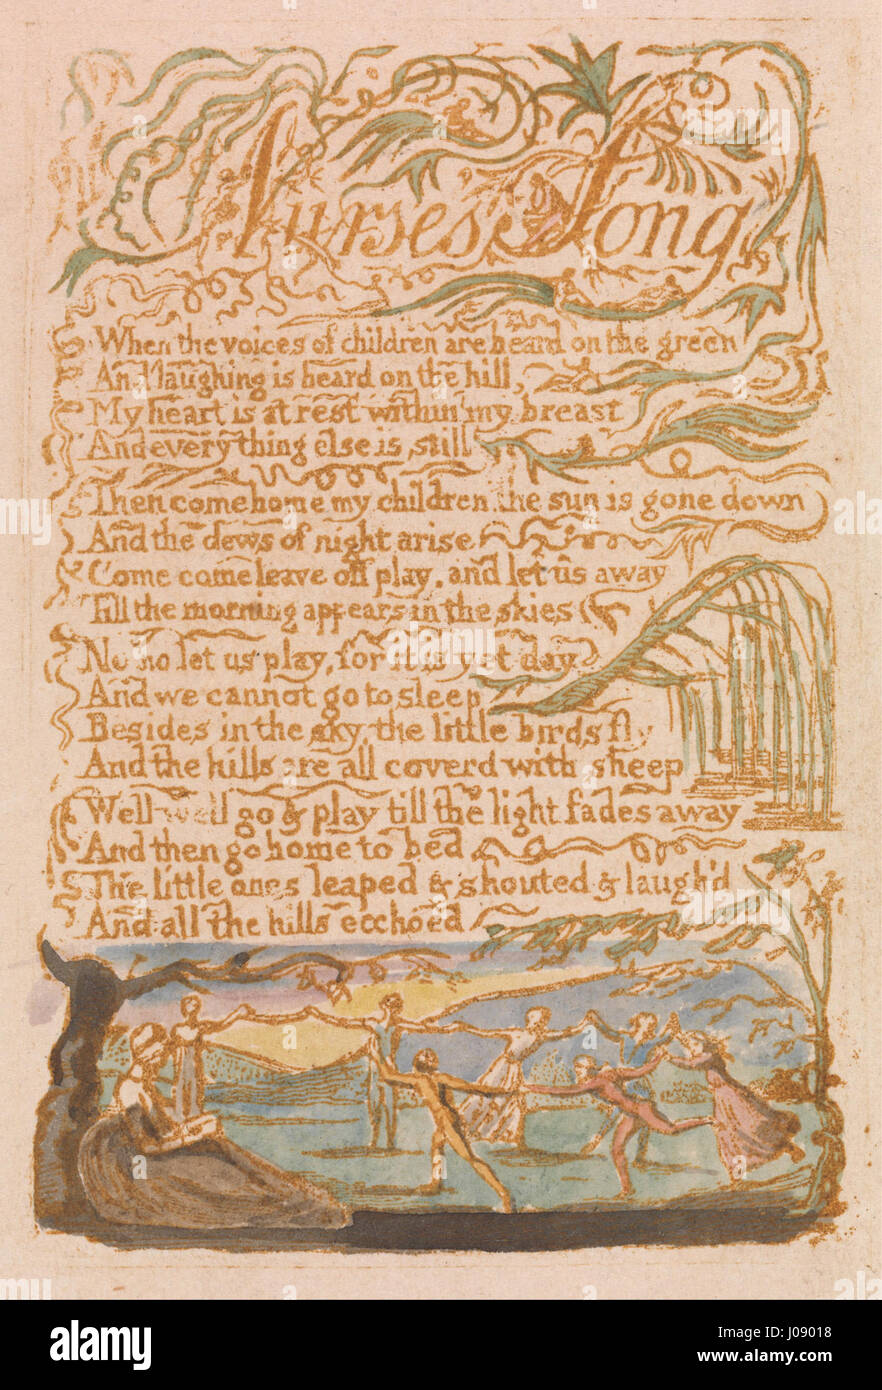 Nurse's Song
When the voices of children are heard on the green
And laughing is heard on the hill,
My heart is at rest within my breast
And every thing else is still
Then come home my children the sun is gone down
And the dews of night arise
Come come leave off play, and let us away
Till the morning appears in the skies
No no let us play, for it is yet day
And we cannot go to sleep
Besides in the sky the little birds fly
And the hills are all coverd with sheep
Well well go & play till the light fades away
And then go home to bed
The little ones leaped & shouted & laugh'd
And all the hills ecchoed
a
alamy
alamy stock photo
J09018
www.alamy.com